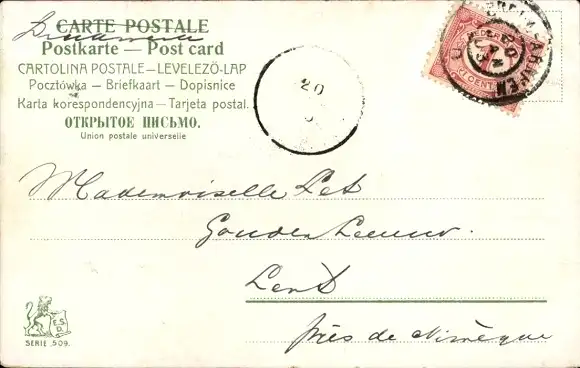 CARTE POSTALE
Postkarte — Post card
CARTOLINA POSTALE — LEVELEZÖ-LAP
Pocztówka — Briefkaart — Dopisnice
Karta korespondencyjna — Tarjeta postal.
ОТКРЫТОЕ ПИСЬМО.
Union postale universelle
20
NEDERL
1 CENT
ARNHEM
Mademoiselle Let
Gouden Leeuw.
Lent
près de Nimègue
E.S.
D.
SERIE 509.